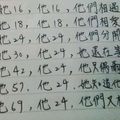 他16，他16，他們相遇
他18，他18，他們相愛
他24，他24，他們分開
他30，他24，他還在等
他42，他24，他只偶爾
他57，他24，他
他69，他24，他們又